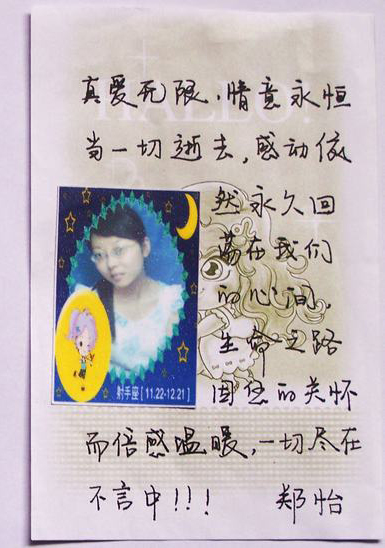 HALLO!
真爱无限，情意永恒
当一切逝去，感动依
然永久回
荡在我们
的心间，
生命之路
因您的关怀
而倍感温暖，一切尽在
不言中！！！ 郑怡
射手座 [ 11.22-12.21 ]